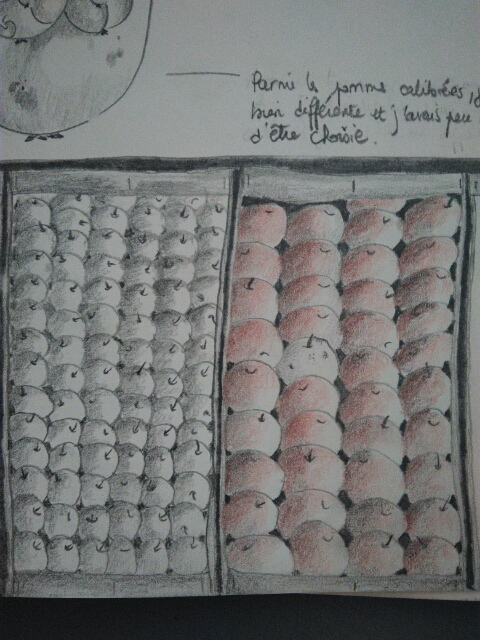 Parmi les pommes calibrées,
bien différente et j'avais peu
d'être choisie.